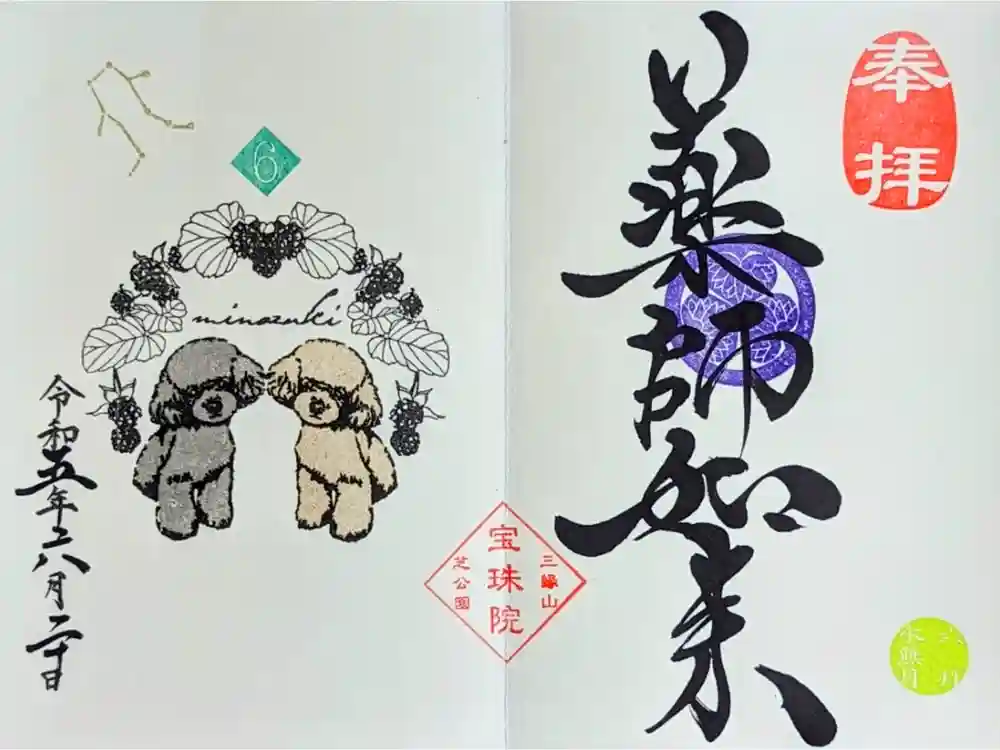 奉拝
薬師如来
六月
水無月
三縁山
宝珠院
芝公園
6
minazuki
令和五年六月二十日